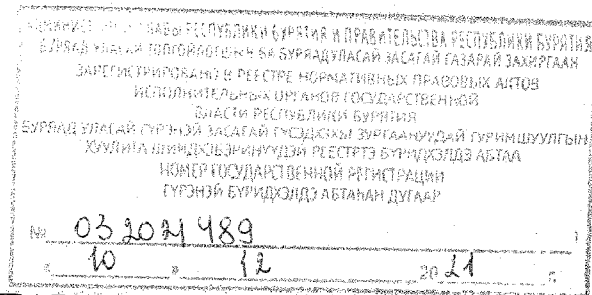 АДМИНИСТРАЦИЯ ГЛАВЫ РЕСПУБЛИКИ БУРЯТИЯ И ПРАВИТЕЛЬСТВА РЕСПУБЛИКИ БУРЯТИЯ
БУРЯАД УЛАСАЙ ТОЛГОЙЛОГШЫН БА БУРЯАД УЛАСАЙ ЗАСАГАЙ ГАЗАРАЙ ЗАХИРГААН
ЗАРЕГИСТРИРОВАНО В РЕЕСТРЕ НОРМАТИВНЫХ ПРАВОВЫХ АКТОВ
ИСПОЛНИТЕЛЬНЫХ ОРГАНОВ ГОСУДАРСТВЕННОЙ
ВЛАСТИ РЕСПУБЛИКИ БУРЯТИЯ
БУРЯАД УЛАСАЙ ГҮРЭНЭЙ ЗАСАГАЙ ГҮЙСЭДХЭХЫ ЗУРГААНУУДАЙ ГУРИМШУУЛГЫН
ХУУЛИТА ШИИДХЭБЭРИНҮҮДЭЙ РЕЕСТРТЭ БҮРИДХЭЛДЭ АБТАА
НОМЕР ГОСУДАРСТВЕННОЙ РЕГИСТРАЦИИ
ГҮРЭНЭЙ БҮРИДХЭЛДЭ АБТАҺАН ДУГААР
№ 032021489
« 10 » 12 2021 г.